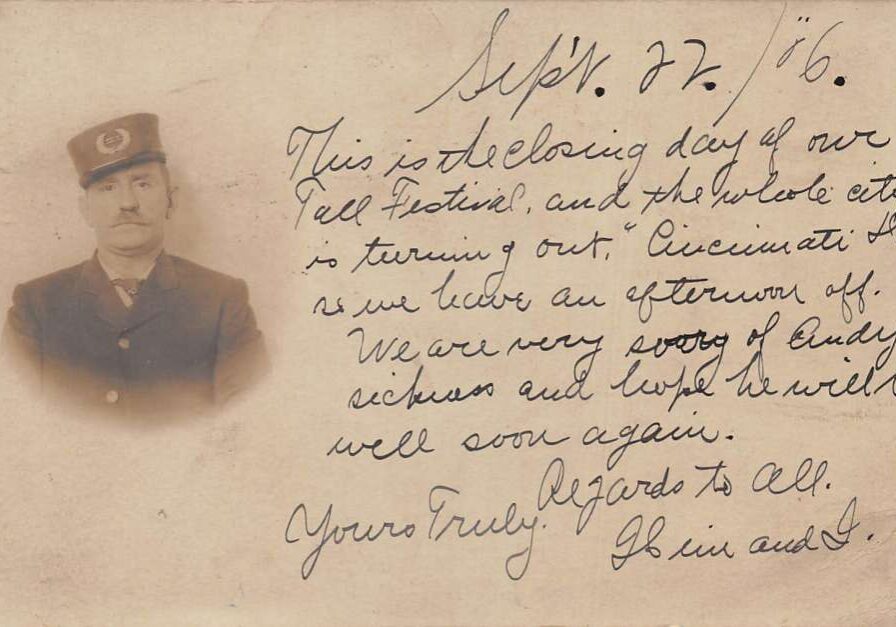 Sept. 22. / "06.
This is the closing day of our
Fall Festival, and the whole
is turning out, "Cincinnati
so we have an afternoon off.
We are very sorry of
sickness and hope he will
well soon again.
Regards to All.
Yours Truly.
and I.